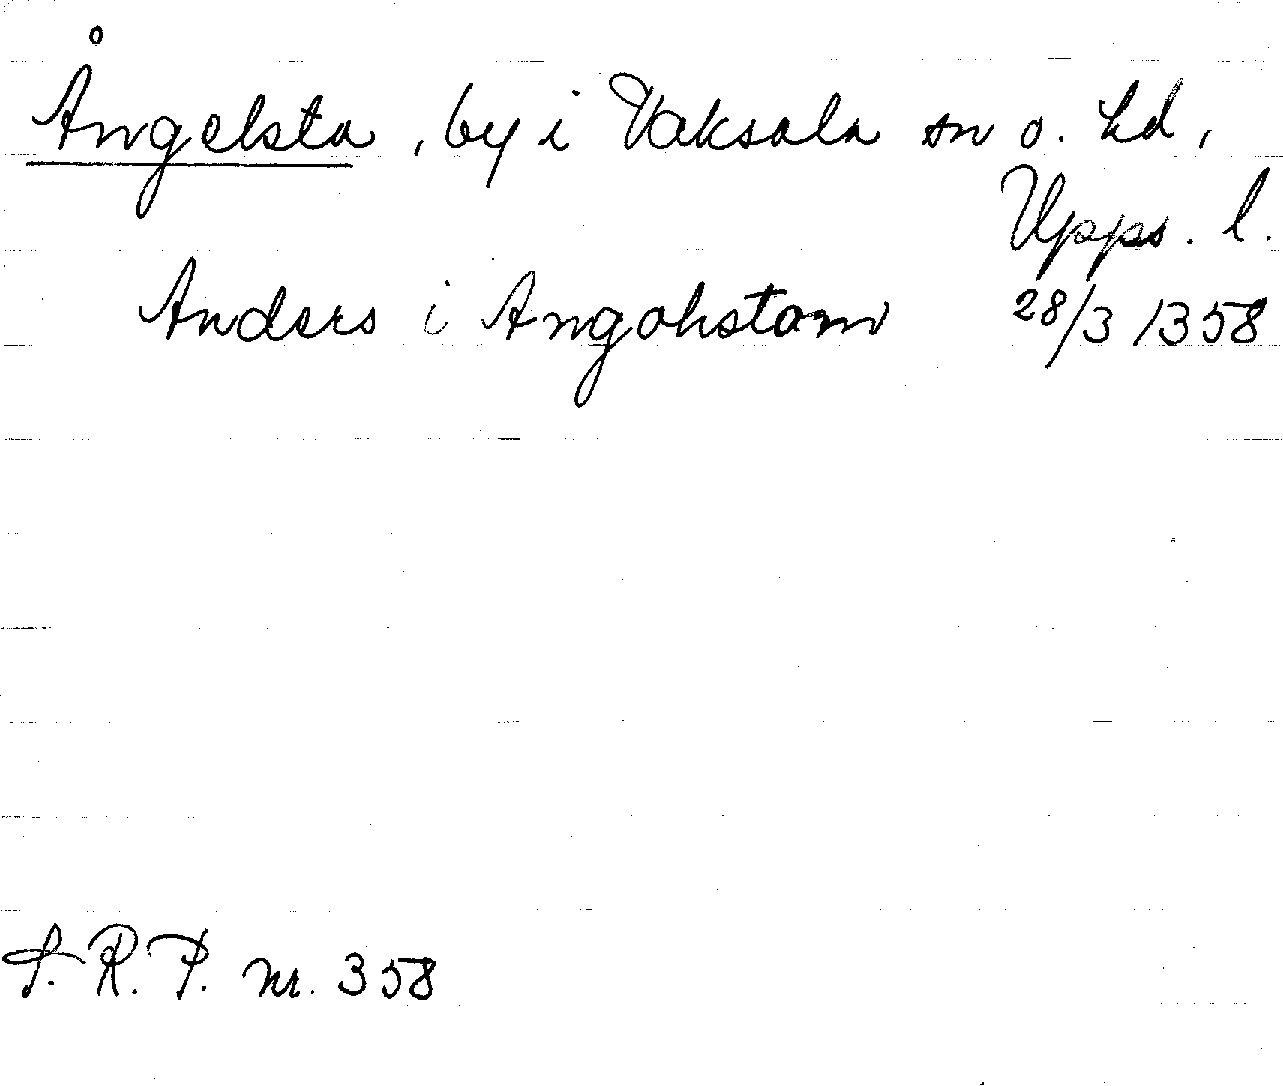 Ångelsta, by i Vaksala sn o. hd,
Upps. l.
Anders i Angahstom 28/3 1358
S.R.P. nr. 358